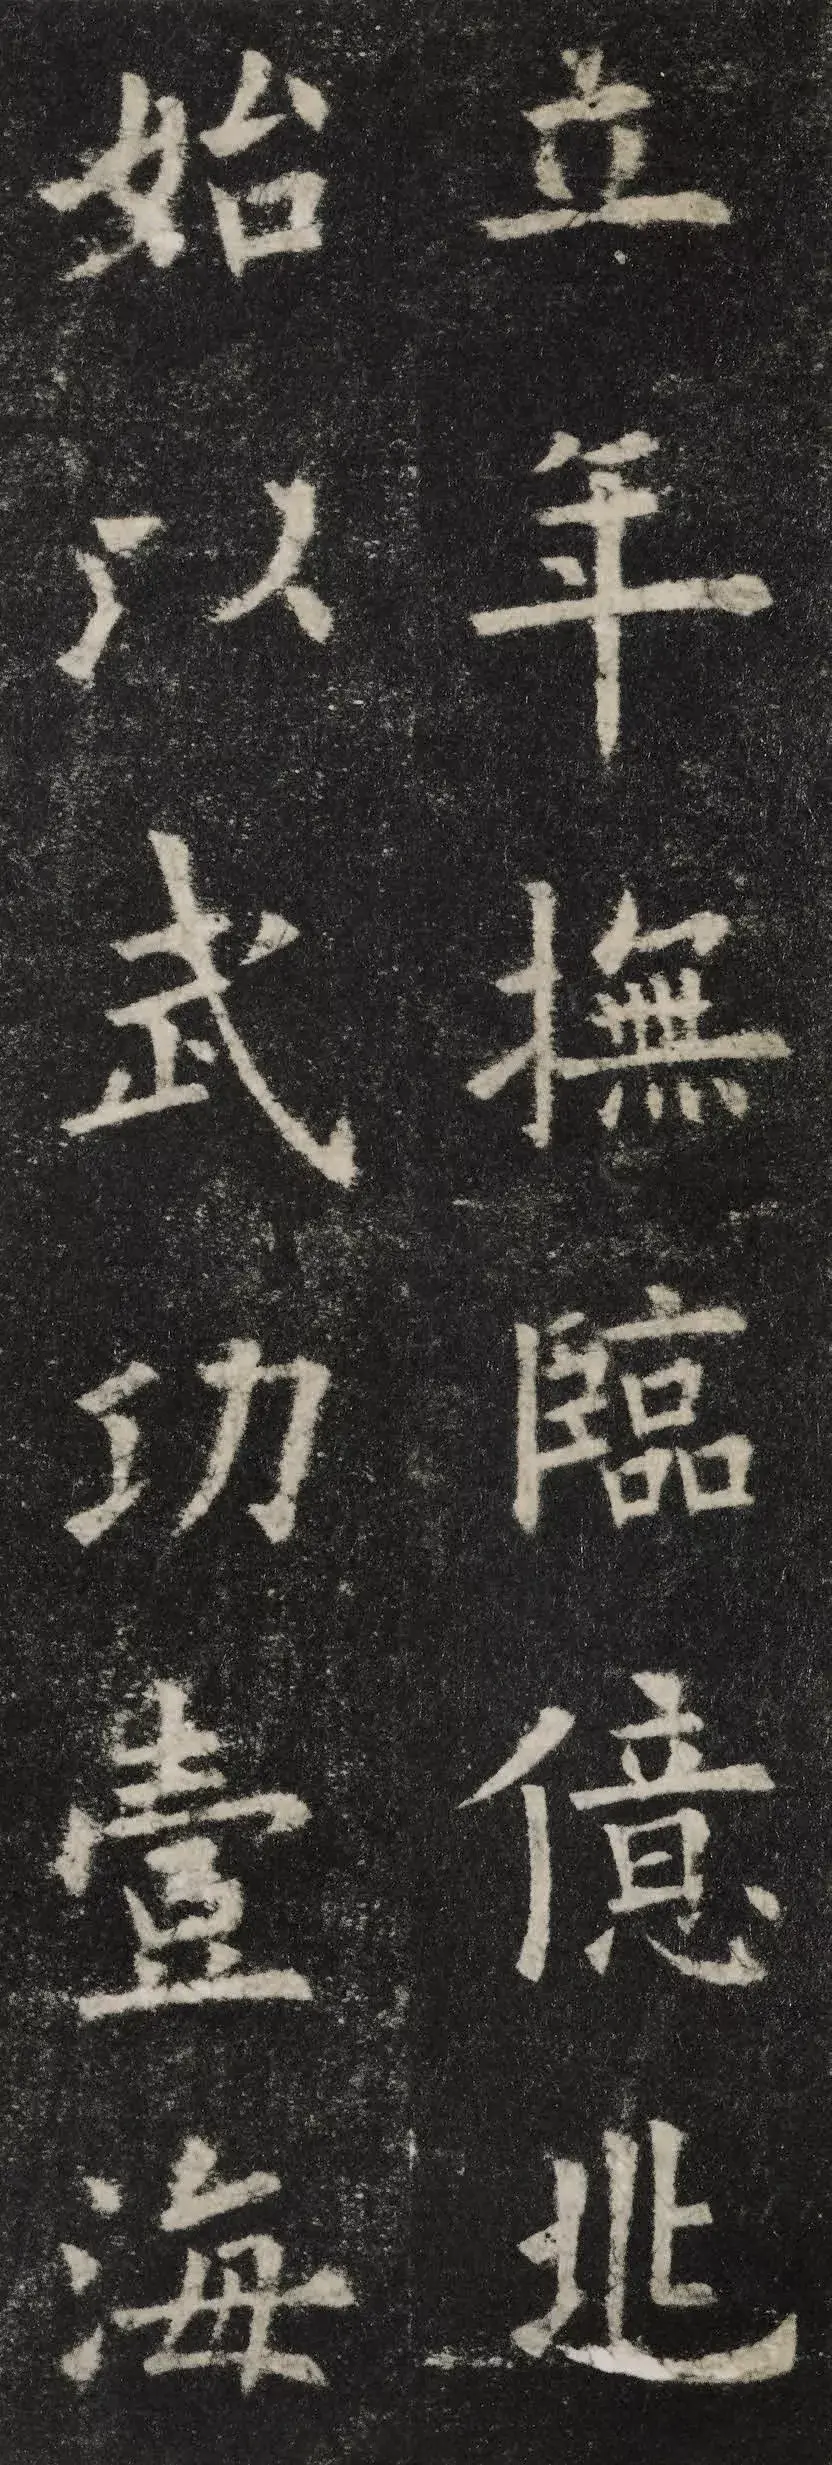 立年撫臨億兆
始以武功壹海